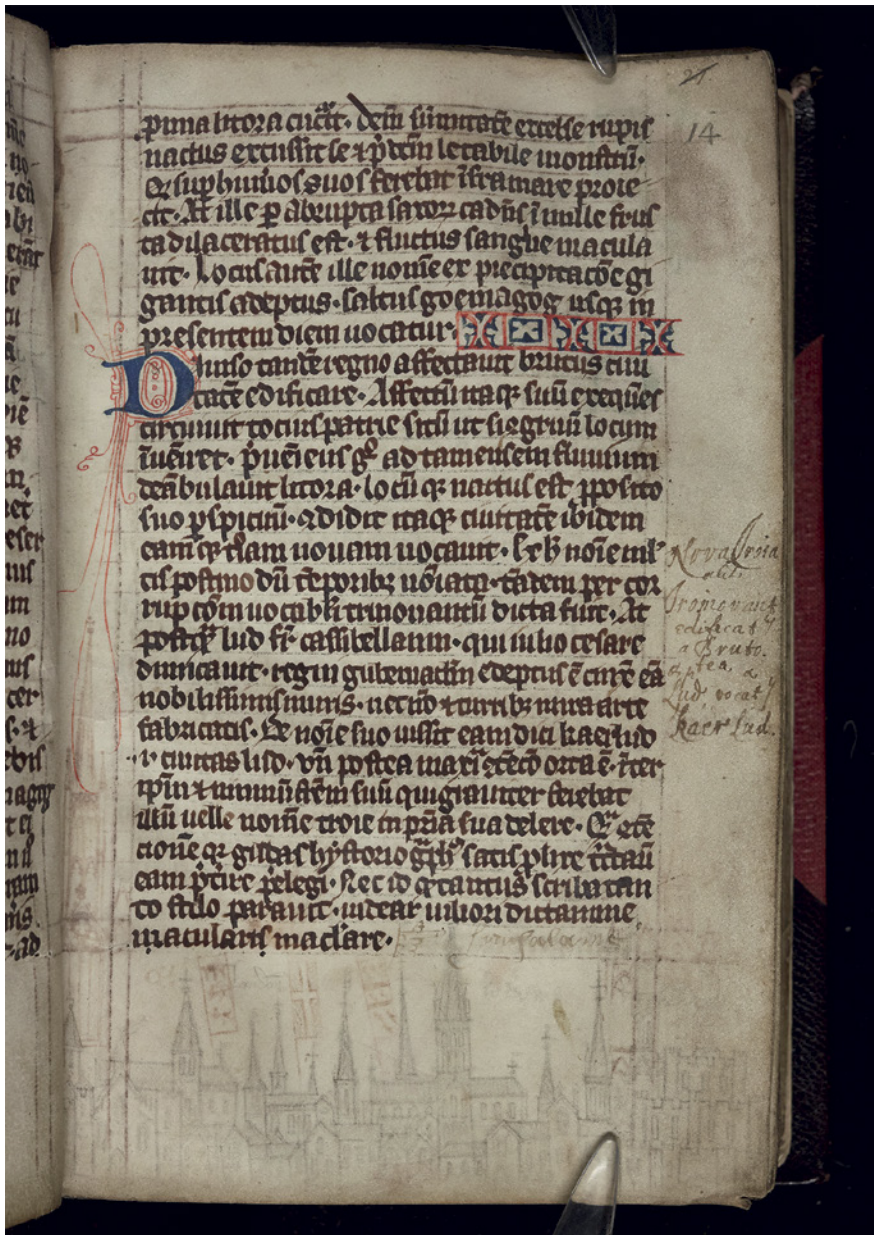 21
14
ꝓxima litora cucͣrit. Deīn sūmitatē excelse rupis
nactus excussit se ⁊ p̄dc̄m letabile monstrū.
Qͣ suꝑ humeros suos ferebat īfra mare proie
cit. At ille ꝑ abrupta saxoꝝ cadēs ī mille frus
ta dilaceratus est. ⁊ fluctus sanguīe macula
uit. Locus autē ille nomē ex precipitacōe gi
gantis adeptus. saltus goemagog usqꝫ in
presentem diem uocatur.
Diuiso tandē regno affectauit brutus ciui
tatē edificare. Affectū itaqꝫ suū exequēs
circuiuit tocius patrie situ ut ꝯgruū locum
īueniret. ꝑueniens gͦ ad tamensem fluuium
deābulauit litora. locūqꝫ nactus est ꝓposito
suo ꝑspicuū. ꝯdidit itaqꝫ ciuitatē ibidem
eamqꝫ troiam nouam uocauit. ⁊ eb noīe ml̄
tis postmodū tēporibꝫ nōiata. tādem per cor
rupcōm uocabli trinouantū dicta fuit. At
postqͣꝫ lud fr̄ cassibellauni. qui iulio cesare
dimicauit. regni gubernaclm̄ edeptus ē cinxit eā
nobilissimis muris. necnō ⁊ turribꝫ mira arte
fabricatis. De noīe suo iussit eam dici kaerlud
.i. ciuitas lud. vn̄ postea maxīa ꝯtencō orta ē. īter
ipm̄ ⁊ nennium frēm suū qui grauiter ferebat
illū uelle nomē troie in pria sua delere. Qͣ ꝯtē
cionē qꝫ gildas hystoriogͣphꝰ satis ꝓlixe tͣctauit
eam p̄tire p̄elegi. Nec id qͦ tantus scriba tan
to stilo parauit. uidear uiliori dictamine
maculare.
Nova Troia
alit
Trinovant
edificatꝰ
a Bruto.
postea, a
Lud vocatꝰ
Kaer Lud.